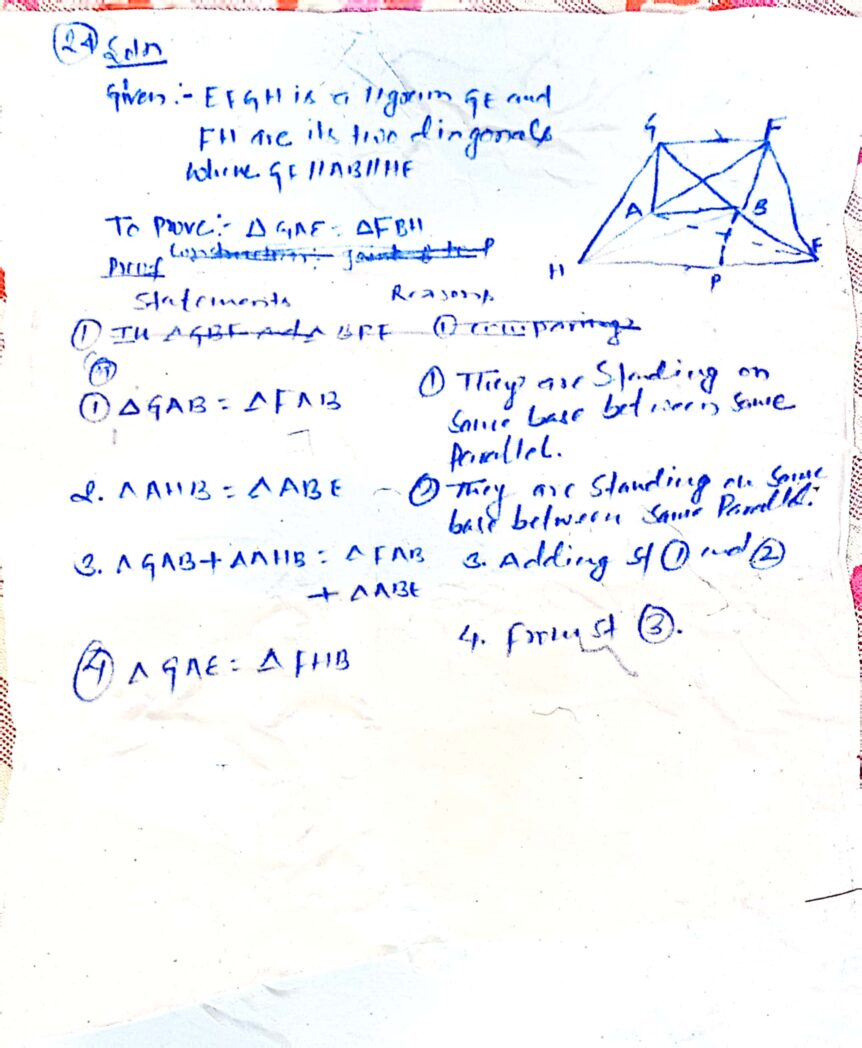 24 Soln
Given :- EFGH is a 11gorum GE and
FH are its two diagonals
where GF // AB // HE
To Prove:- △GAE = △FBH
Construction:- joint
Proof
Statements Reasons
① In △GBF and △BFE ① comparing
① △GAB = △FAB ① They are Standing on
Same base between same
Parallel.
2. △AHB = △ABE - ② They are standing on same
base between same Parallel.
3. △GAB + △AHB = △FAB 3. Adding st ① and ②
+ △ABE
④ △GAE = △FHB 4. From st ③.
G F
A B
H P E